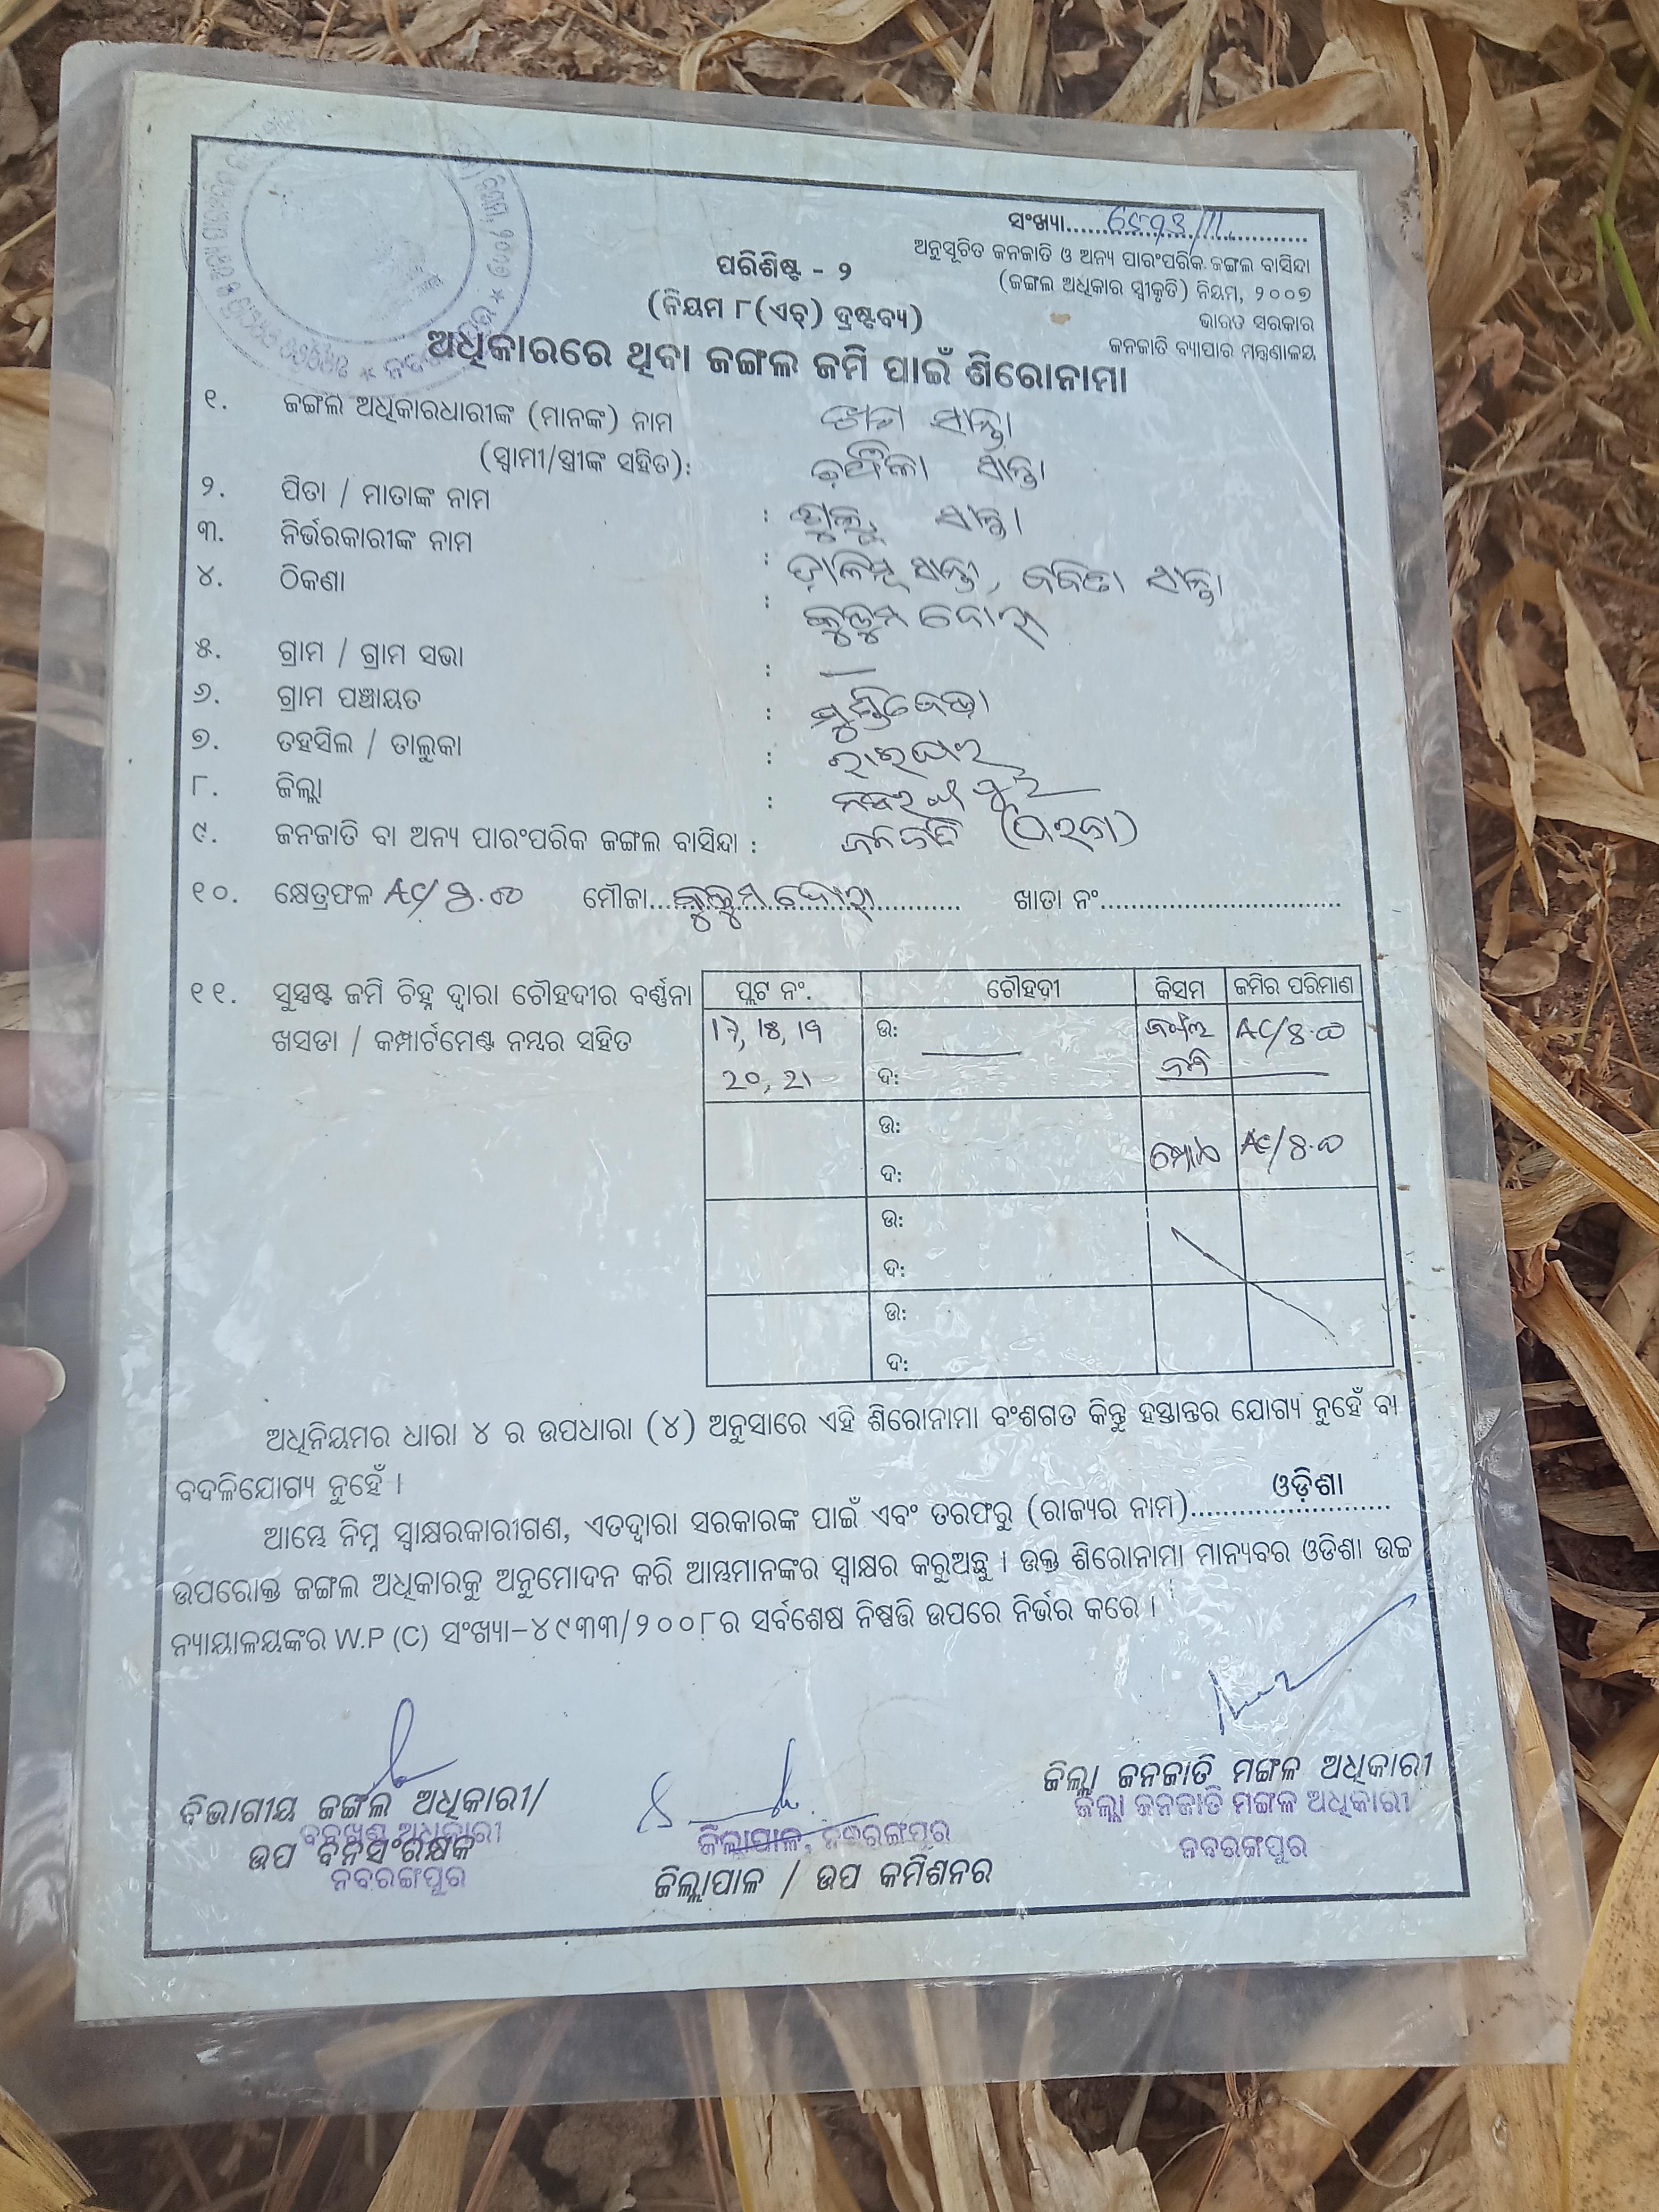 ସଂଖ୍ୟା
ଅନୁସୂଚିତ ଜନଜାତି ଓ ଅନ୍ୟ ପାରଂପରିକ ଜଙ୍ଗଲ ବାସିନ୍ଦା
(ଜଙ୍ଗଲ ଅଧିକାର ସ୍ୱୀକୃତି) ନିୟମ, ୨୦୦୭
ଭାରତ ସରକାର
ଜନଜାତି ବ୍ୟାପାର ମନ୍ତ୍ରଣାଳୟ
ପରିଶିଷ୍ଟ - ୨
(ନିୟମ ୮(ଏଚ୍) ଦ୍ରଷ୍ଟବ୍ୟ)
ଅଧିକାରରେ ଥିବା ଜଙ୍ଗଲ ଜମି ପାଇଁ ଶିରୋନାମା
୧. ଜଙ୍ଗଲ ଅଧିକାରଧାରୀଙ୍କ (ମାନଙ୍କ) ନାମ ସାନ୍ତା
(ସ୍ୱାମୀ/ସ୍ତ୍ରୀଙ୍କ ସହିତ): ସାନ୍ତା
୨. ପିତା / ମାତାଙ୍କ ନାମ : ସାନ୍ତା
୩. ନିର୍ଭରକାରୀଙ୍କ ନାମ : ସାନ୍ତା, ସାନ୍ତା
୪. ଠିକଣା :
୫. ଗ୍ରାମ / ଗ୍ରାମ ସଭା : —
୬. ଗ୍ରାମ ପଞ୍ଚାୟତ :
୭. ତହସିଲ / ତାଲୁକା : ରାଇଘର
୮. ଜିଲ୍ଲା : ନବରଙ୍ଗପୁର
୯. ଜନଜାତି ବା ଅନ୍ୟ ପାରଂପରିକ ଜଙ୍ଗଲ ବାସିନ୍ଦା : ଜନଜାତି (ପରଜା)
୧୦. କ୍ଷେତ୍ରଫଳ ମୌଜା ଖାତା ନଂ
୧୧. ସୁସ୍ପଷ୍ଟ ଜମି ଚିହ୍ନ ଦ୍ୱାରା ଚୌହଦୀର ବର୍ଣ୍ଣନା
ଖସଡା / କମ୍ପାର୍ଟମେଣ୍ଟ ନମ୍ବର ସହିତ
ପ୍ଲଟ ନଂ. ଚୌହଦୀ କିସମ ଜମିର ପରିମାଣ
17, 18, 19 ଉ: ଜଙ୍ଗଲ
20, 21 ଦ: ଜମି
ଉ:
ଦ:
ଉ:
ଦ:
ଉ:
ଦ:
ଅଧିନିୟମର ଧାରା ୪ ର ଉପଧାରା (୪) ଅନୁସାରେ ଏହି ଶିରୋନାମା ବଂଶଗତ କିନ୍ତୁ ହସ୍ତାନ୍ତର ଯୋଗ୍ୟ ନୁହେଁ ବା
ବଦଳିଯୋଗ୍ୟ ନୁହେଁ ।
ଆମ୍ଭେ ନିମ୍ନ ସ୍ୱାକ୍ଷରକାରୀଗଣ, ଏତଦ୍ୱାରା ସରକାରଙ୍କ ପାଇଁ ଏବଂ ତରଫରୁ (ରାଜ୍ୟର ନାମ) ଓଡ଼ିଶା
ଉପରୋକ୍ତ ଜଙ୍ଗଲ ଅଧିକାରକୁ ଅନୁମୋଦନ କରି ଆମ୍ଭମାନଙ୍କର ସ୍ୱାକ୍ଷର କରୁଅଛୁ । ଉକ୍ତ ଶିରୋନାମା ମାନ୍ୟବର ଓଡିଶା ଉଚ୍ଚ
ନ୍ୟାୟାଳୟଙ୍କର W.P (C) ସଂଖ୍ୟା-୪୯୩୩/୨୦୦୮ର ସର୍ବଶେଷ ନିଷ୍ପତ୍ତି ଉପରେ ନିର୍ଭର କରେ ।
ବିଭାଗୀୟ ଜଙ୍ଗଲ ଅଧିକାରୀ/
ବନଖଣ୍ଡ ଅଧିକାରୀ
ଉପ ବନସଂରକ୍ଷକ
ନବରଙ୍ଗପୁର
ଜିଲ୍ଲାପାଳ, ନବରଙ୍ଗପୁର
ଜିଲ୍ଲାପାଳ / ଉପ କମିଶନର
ଜିଲ୍ଲା ଜନଜାତି ମଙ୍ଗଳ ଅଧିକାରୀ
ଜିଲ୍ଲା ଜନଜାତି ମଙ୍ଗଳ ଅଧିକାରୀ
ନବରଙ୍ଗପୁର